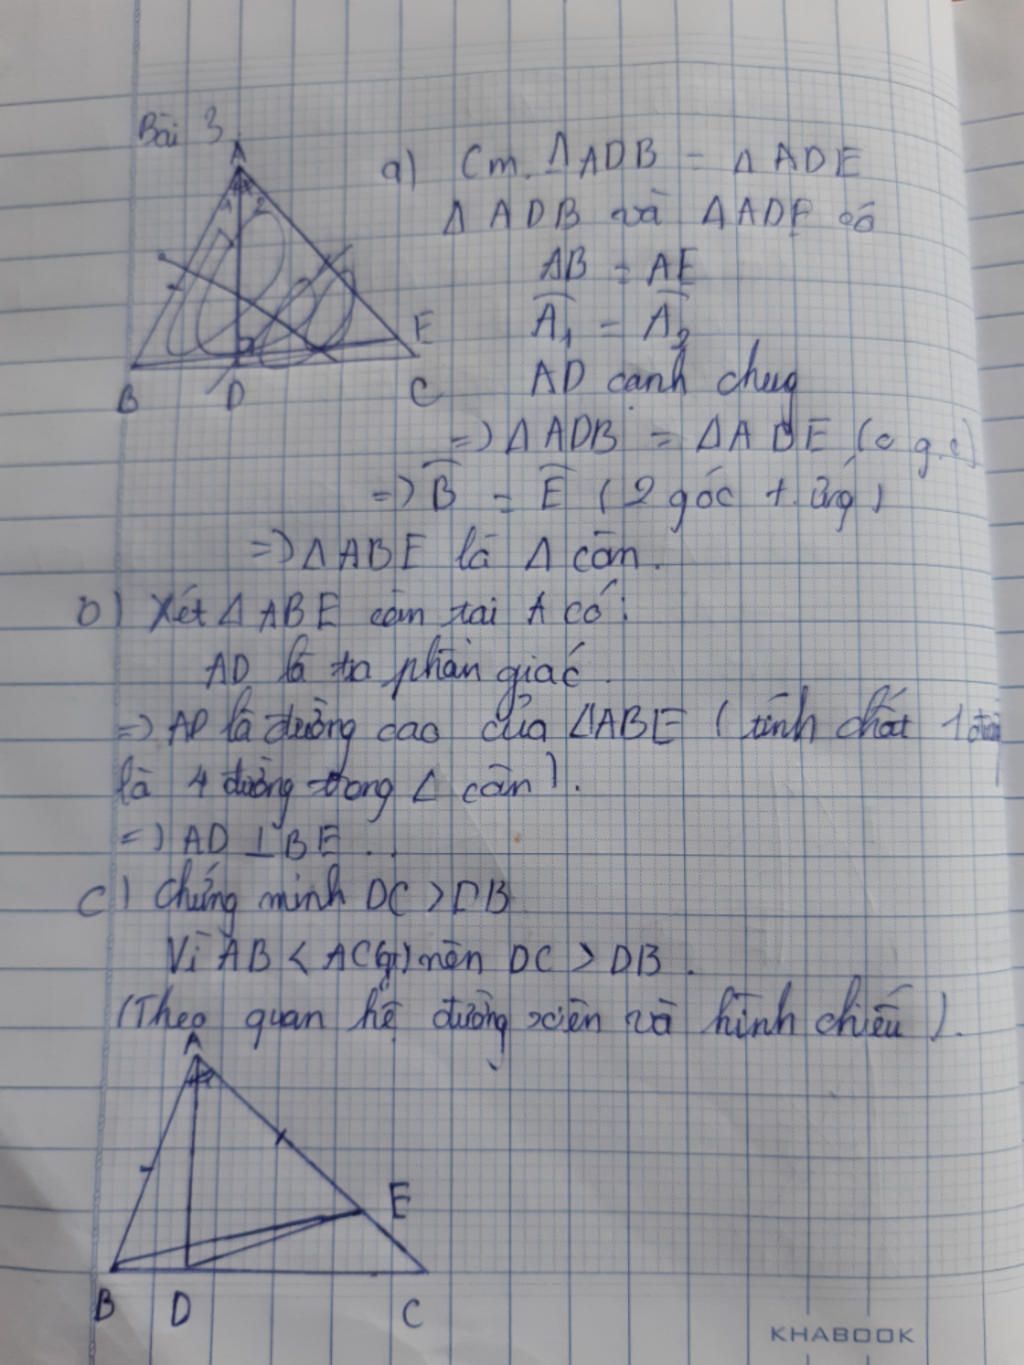 Bài 3
A
1 2
E
B D C
a) Cm. ΔADB = ΔADE
ΔADB và ΔADE có
AB = AE
Â1 = Â2
AD cạnh chug
=> ΔADB = ΔADE (c g.c)
=> B̂ = Ê (2 góc t.ứng)
=> ΔABE là Δ cân.
b) Xét ΔABE cân tại A có:
AD là tia phân giác.
=> AD là đường cao của ΔABE (tính chất 1 đường
là 4 đường trong Δ cân).
=> AD ⊥ BE..
c) Chứng minh DC > DB
Vì AB < AC(gt) nên DC > DB.
(Theo quan hệ đường xiên và hình chiếu).
A
E
B D C
KHABOOK